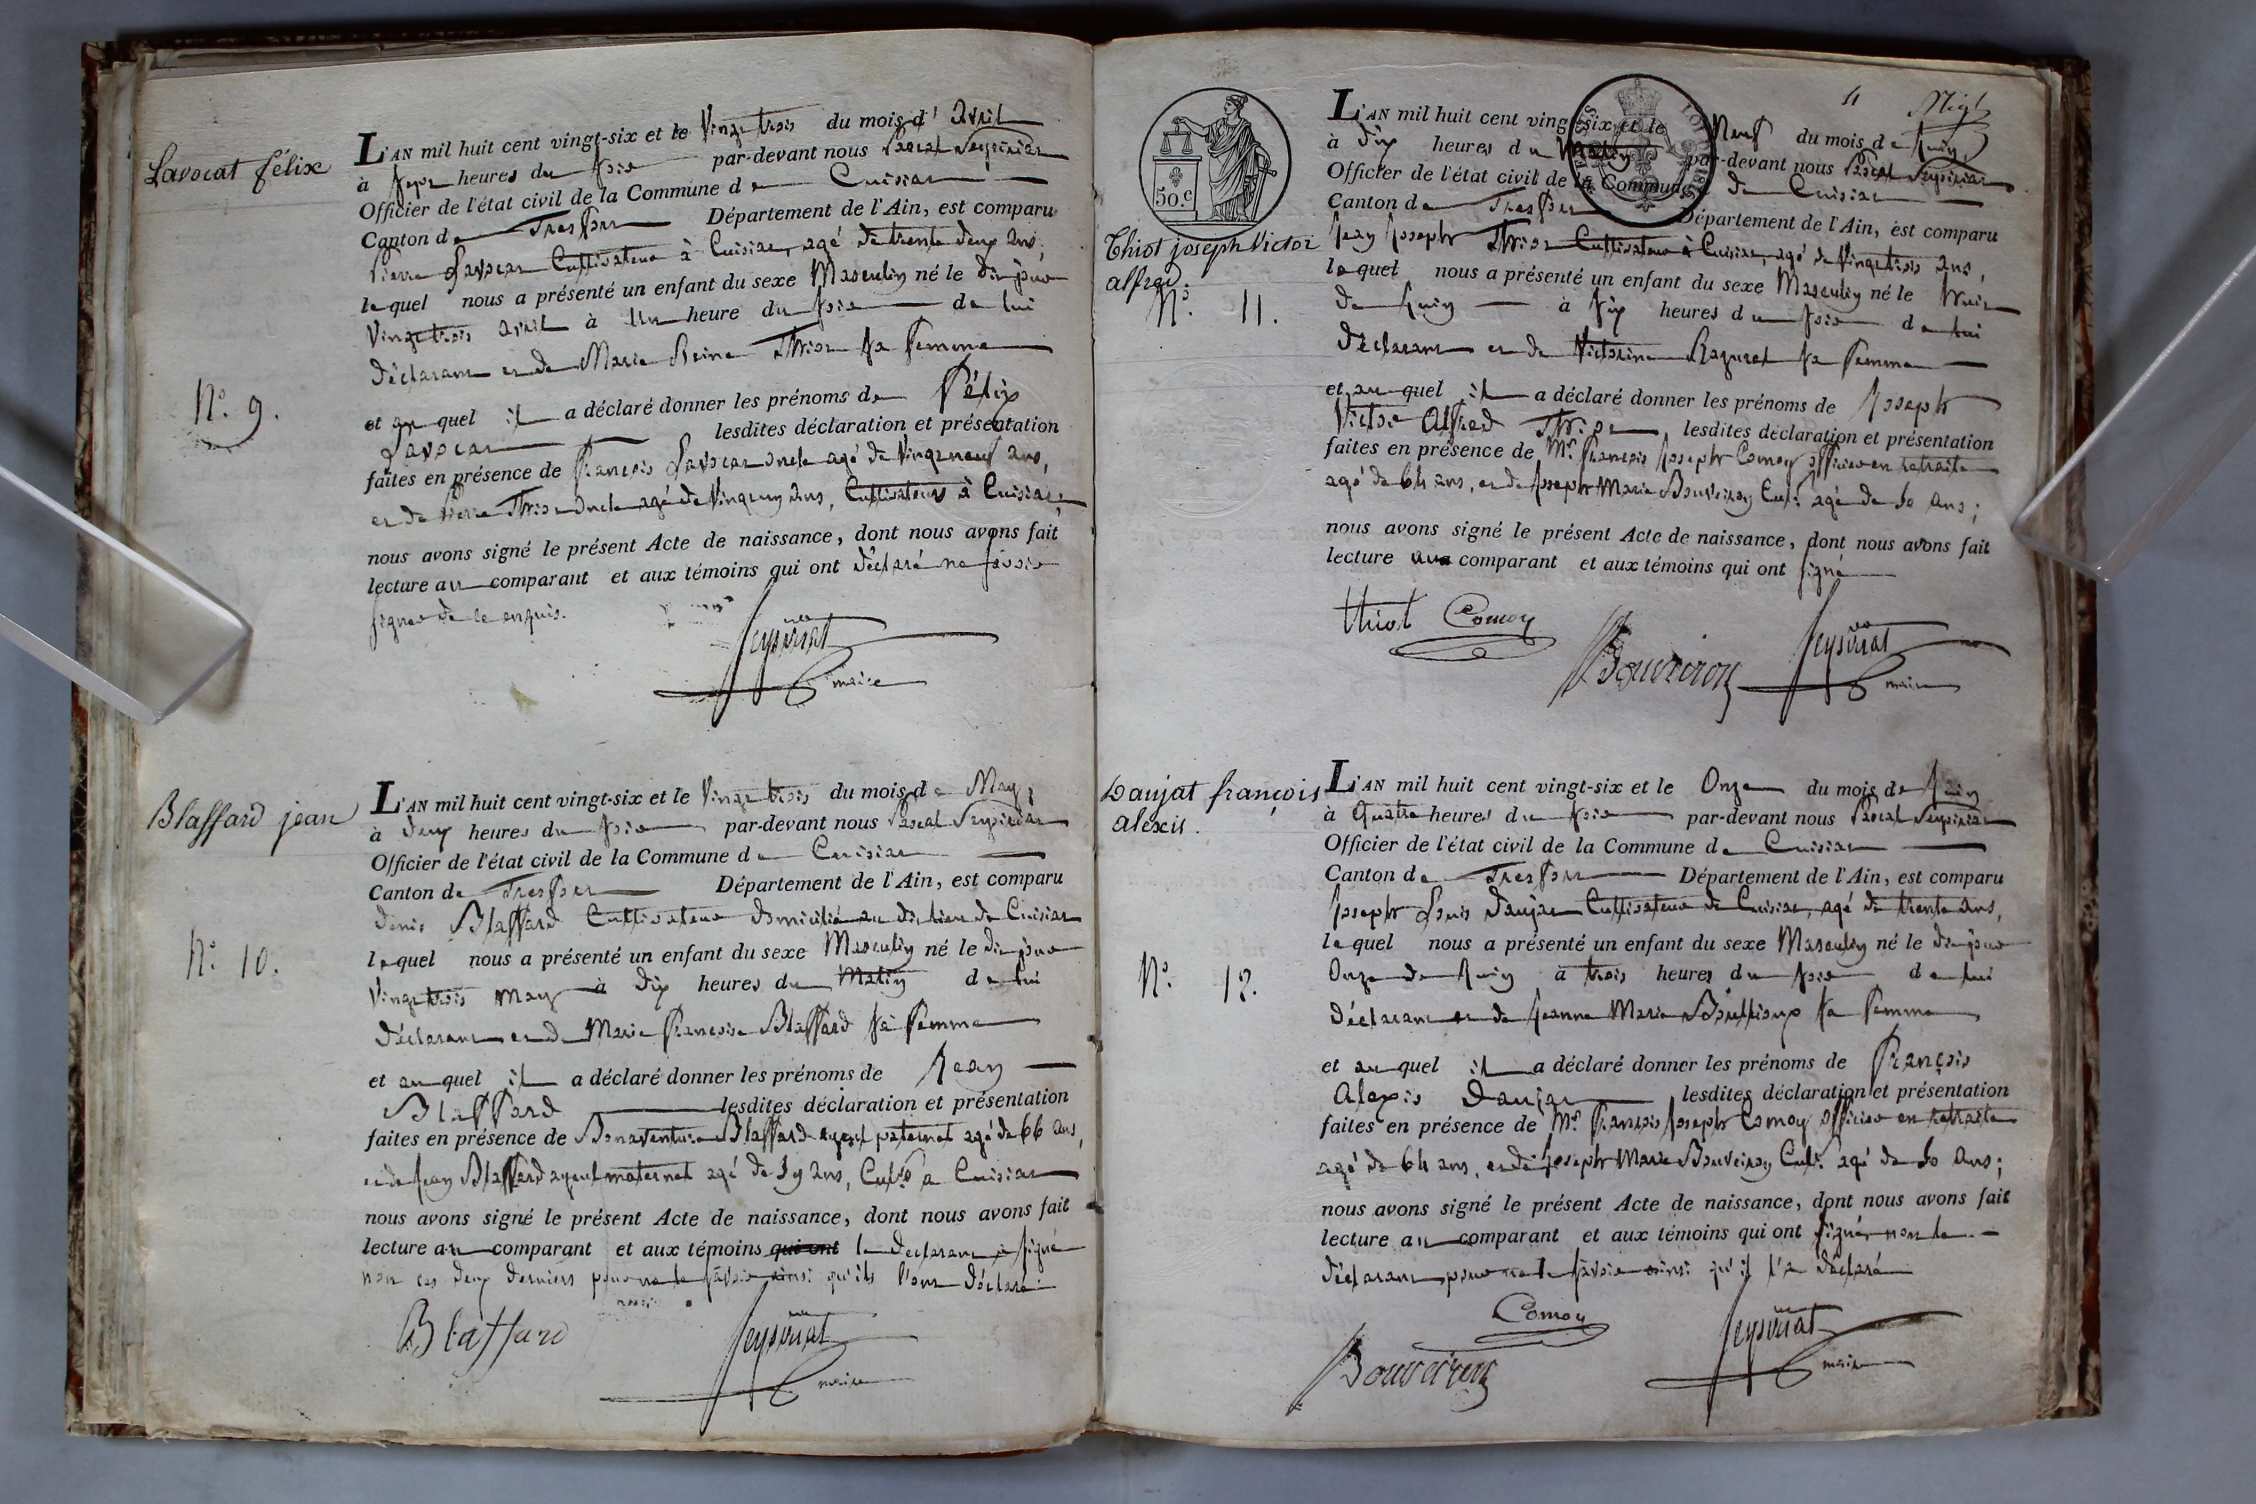 Lavocat félix
N.º 9.
L'AN mil huit cent vingt-six et le Vingt trois du mois d' avril
à sept heures du soir par-devant nous Pascal Seysiriat
Officier de l'état civil de la Commune de Cuisiat
Canton de Treffort Département de l'Ain, est comparu
Pierre Lavocat Cultivateur à Cuisiat, agé de trente deux ans,
lequel nous a présenté un enfant du sexe Masculin né le dit jour
Vingt trois avril à une heure du soir de lui
déclarant et de Marie Reine Thiot sa femme
et auquel il a déclaré donner les prénoms de Félix
Lavocat lesdites déclaration et présentation
faites en présence de François Lavocat oncle agé de Vingt neuf ans,
et de Pierre Thiot oncle agé de Vingt un ans, Cultivateurs à Cuisiat;
nous avons signé le présent Acte de naissance, dont nous avons fait
lecture au comparant et aux témoins qui ont déclaré ne savoir
signer de ce enquis.
Seysiriat
maire
Blaffard jean
N.º 10.
L'AN mil huit cent vingt-six et le Vingt trois du mois de May,
à deux heures du soir par-devant nous Pascal Seysiriat
Officier de l'état civil de la Commune de Cuisiat
Canton de Treffort Département de l'Ain, est comparu
denis Blaffard Cultivateur domicilié au dit lieu de Cuisiat
lequel nous a présenté un enfant du sexe Masculin né le dit jour
Vingt trois may à dix heures du Matin de lui
déclarant et de Marie françoise Blaffard sa femme
et auquel il a déclaré donner les prénoms de Jean
Blaffard lesdites déclaration et présentation
faites en présence de Bonaventure Blaffard ayeul paternel agé de 66 ans,
et de Jean Blaffard ayeul maternel agé de 59 ans, Cult.rs a Cuisiat
nous avons signé le présent Acte de naissance, dont nous avons fait
lecture au comparant et aux témoins qui ont le declarant a signé
non ces deux derniers pour ne le savoir ainsi qu'ils l'ont déclaré
Blaffard
Seysiriat
maire
4
50.c
Thiot joseph Victor
alfred.
N.º 11.
L'AN mil huit cent vingt-six et le Neuf du mois de Juin,
à dix heures du Matin par-devant nous Pascal Seysiriat
Officier de l'état civil de la Commune de Cuisiat
Canton de Treffort Département de l'Ain, est comparu
Jean Joseph Thiot Cultivateur à Cuisiat, agé de Vingt trois ans,
lequel nous a présenté un enfant du sexe Masculin né le huit
de Juin à six heures du soir de lui
déclarant et de Victorine Ragurel sa femme
et auquel il a déclaré donner les prénoms de Joseph
Victor Alfred Thiot lesdites déclaration et présentation
faites en présence de Mr. François Joseph Comoy officier en retraite
agé de 64 ans, et de Joseph Marie Bouveiron Cult. agé de 50 ans;
nous avons signé le présent Acte de naissance, dont nous avons fait
lecture aux comparant et aux témoins qui ont signé
thiot Comoy
Bouveiron
Seysiriat
maire
Daujat françois
alexis.
N.º 12.
L'AN mil huit cent vingt-six et le Onze du mois de Juin
à Quatre heures du soir par-devant nous Pascal Seysiriat
Officier de l'état civil de la Commune de Cuisiat
Canton de Treffort Département de l'Ain, est comparu
Joseph Louis Daujat Cultivateur de Cuisiat, agé de trente ans,
lequel nous a présenté un enfant du sexe Masculin né le dit jour
Onze de Juin à trois heures du soir de lui
déclarant et de Jeanne Marie sa femme
et auquel il a déclaré donner les prénoms de François
Alexis Daujat lesdites déclaration et présentation
faites en présence de Mr. François Joseph Comoy officier en retraite
agé de 64 ans, et de Joseph Marie Bouveiron Cult. agé de 50 ans;
nous avons signé le présent Acte de naissance, dont nous avons fait
lecture au comparant et aux témoins qui ont signé, non le
déclarant pour ne le savoir ainsi qu'il l'a déclaré
Comoy
Bouveiron
Seysiriat
maire